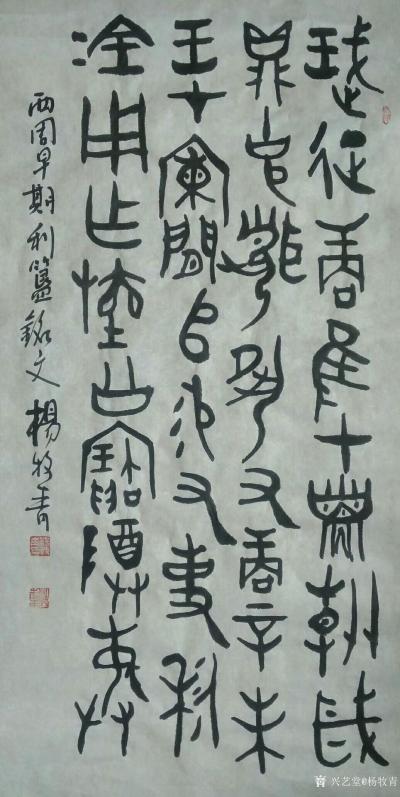 珷征商隹甲子朝歲
鼎克聞夙又商辛未
王才闌𠂤易又事利
金用乍旜公寶尊彝
西周早期利簋銘文 楊牧青
兴艺堂@杨牧青